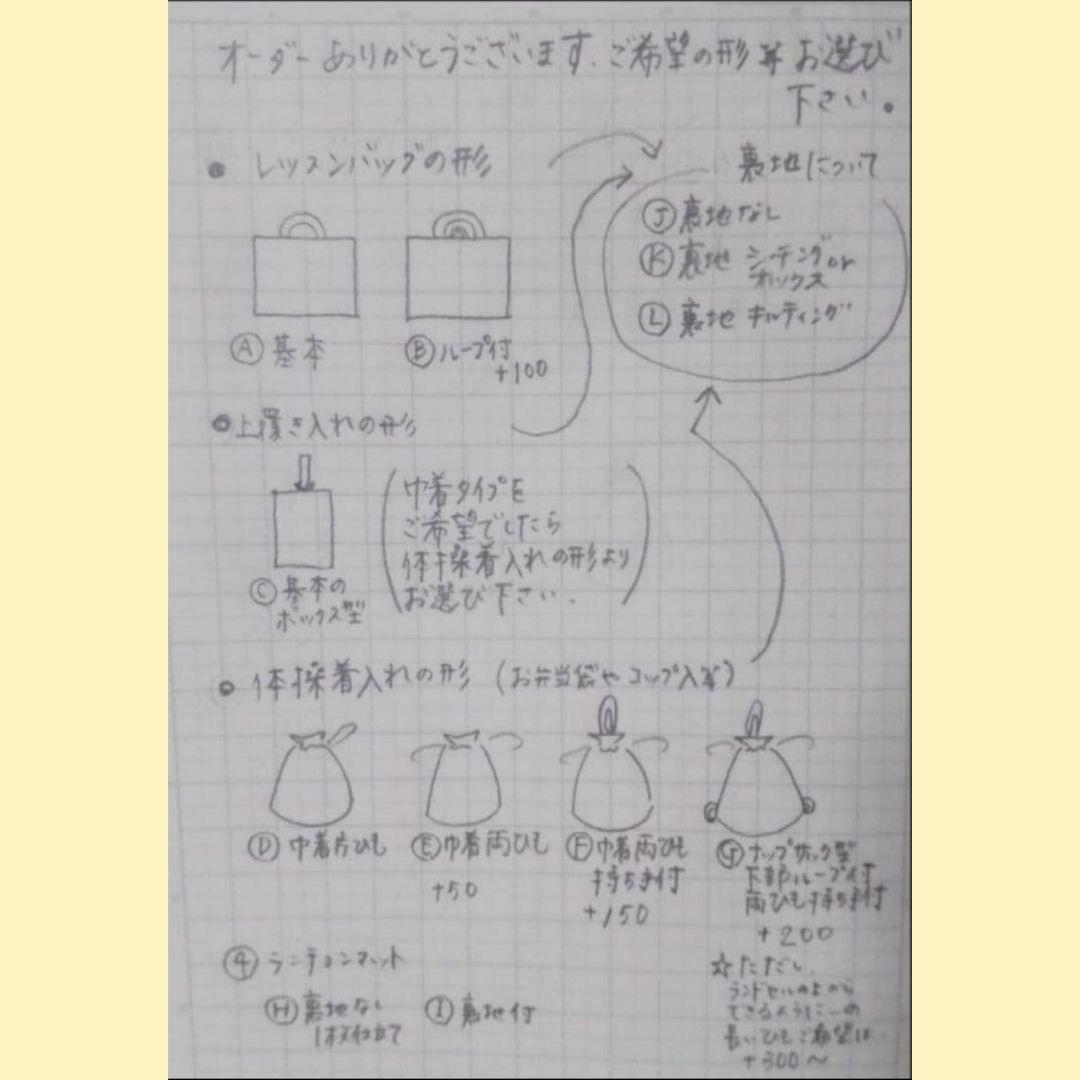 オーダーありがとうございます、ご希望の形をお選び
下さい。
●レッスンバッグの形
Ⓐ基本
Ⓑループ付
+100
裏地について
Ⓙ裏地なし
Ⓚ裏地 シーチングor
オックス
Ⓛ裏地 キルティング
●上履き入れの形
Ⓒ基本の
ボックス型
(巾着タイプを
ご希望でしたら
体操着入れの形より
お選び下さい.)
●体操着入れの形(お弁当袋やコップ入等)
Ⓓ巾着片ひも
Ⓔ巾着両ひも
+50
Ⓕ巾着両ひも
持ち手付
+150
Ⓖナップサック型
下部ループ付
両ひも持ち手付
+200
☆ただし
ランドセルの上から
できるように…の
長いひもご希望は
+300〜
④ランチョンマット
Ⓗ裏地なし
1枚仕立て
Ⓘ裏地付